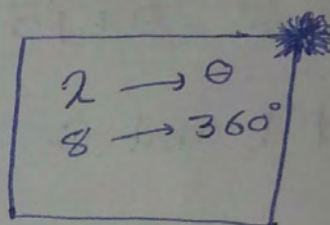 2 → θ
8 → 360°